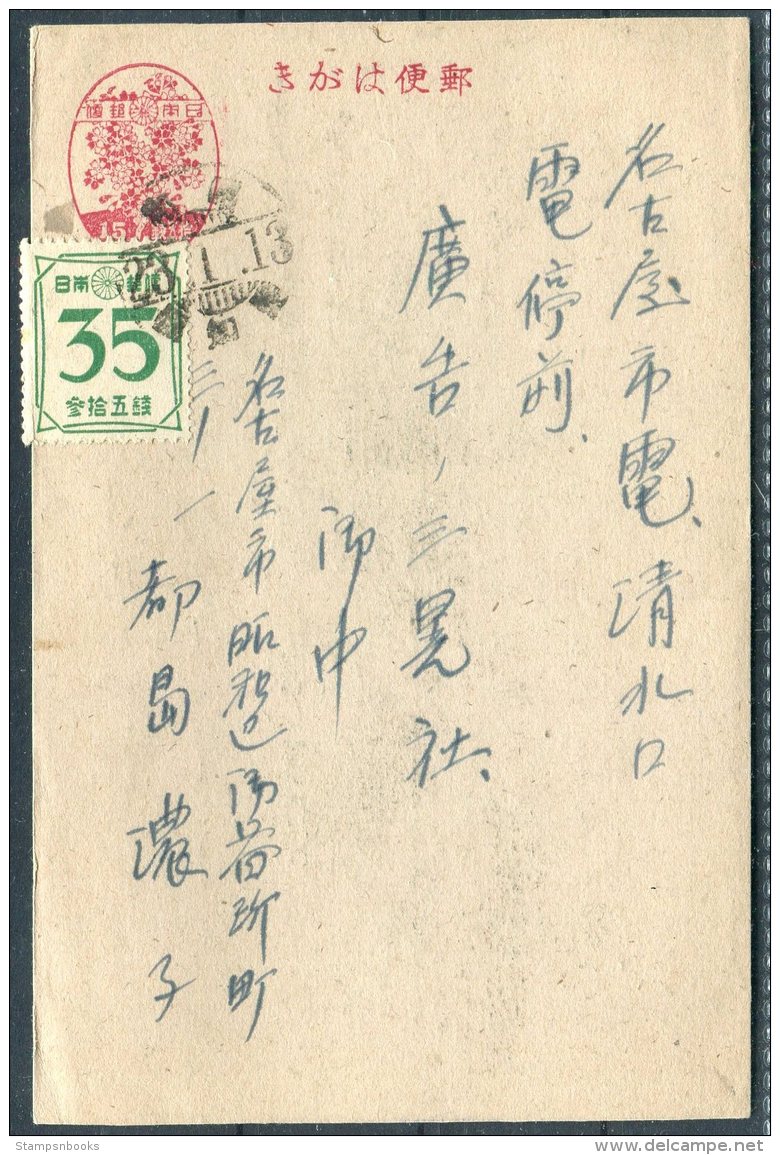 きがは便郵
日本郵便
15
日本郵便
35
参拾五銭
23.1.13
名古屋市電、清水口
電停前、
廣告ノ三晃社、
御中
名古屋市昭和区御器所町
三ノ一
都島濃子
Stampsnbooks
delcampe.net